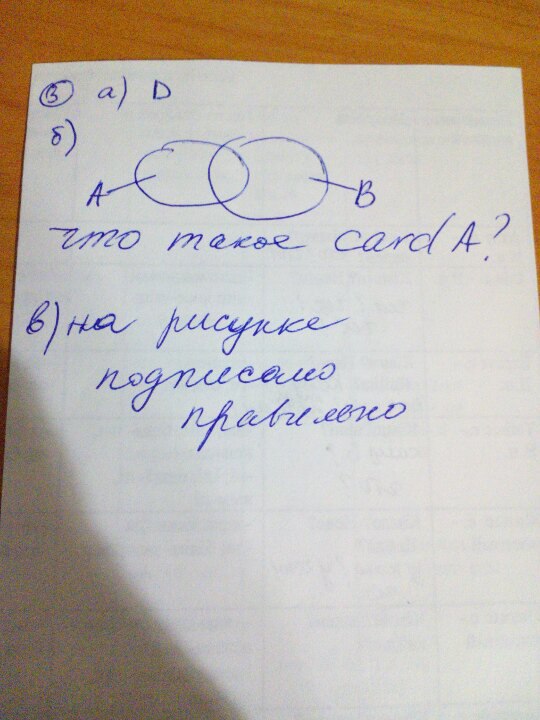 ③ а) D
б)
А В
что такое card A?
в) на рисунке
подписано
правильно